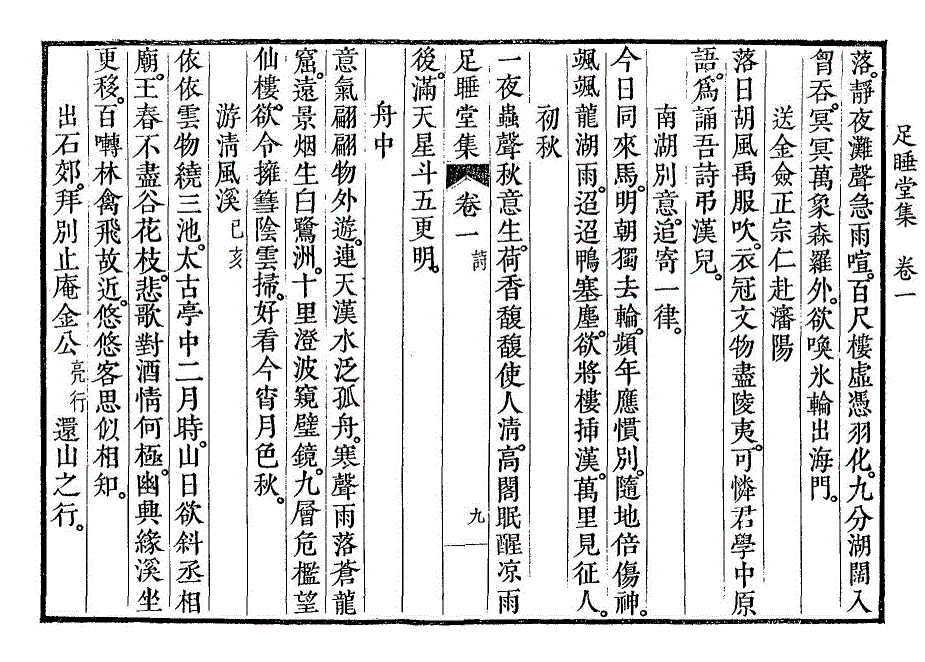 足睡堂集 卷一
落。靜夜灘聲急雨喧。百尺樓虛憑羽化。九分湖闊入
胷吞。冥冥萬象森羅外。欲喚氷輪出海門。
送金僉正宗仁赴瀋陽
落日胡風禹服吹。衣冠文物盡陵夷。可憐君學中原
語。爲誦吾詩弔漢兒。
南湖別意。追寄一律。
今日同來馬。明朝獨去輪。頻年應慣別。隨地倍傷神。
颯颯龍湖雨。迢迢鴨塞塵。欲將樓揷漢。萬里見征人。
初秋
一夜蟲聲秋意生。荷香馥馥使人淸。高閣眠醒凉雨
足睡堂集 卷一 詩 九
後。滿天星斗五更明。
舟中
意氣翩翩物外遊。連天漢水泛孤舟。寒聲雨落蒼龍
窟。遠景烟生白鷺洲。十里澄波窺璧鏡。九層危檻望
仙樓。欲令擁篲陰雲掃。好看今宵月色秋。
游淸風溪 己亥
依依雲物繞三池。太古亭中二月時。山日欲斜丞相
廟。王春不盡谷花枝。悲歌對酒情何極。幽興緣溪坐
更移。百囀林禽飛故近。悠悠客思似相知。
出石郊。拜別止庵金公 亮行 還山之行。